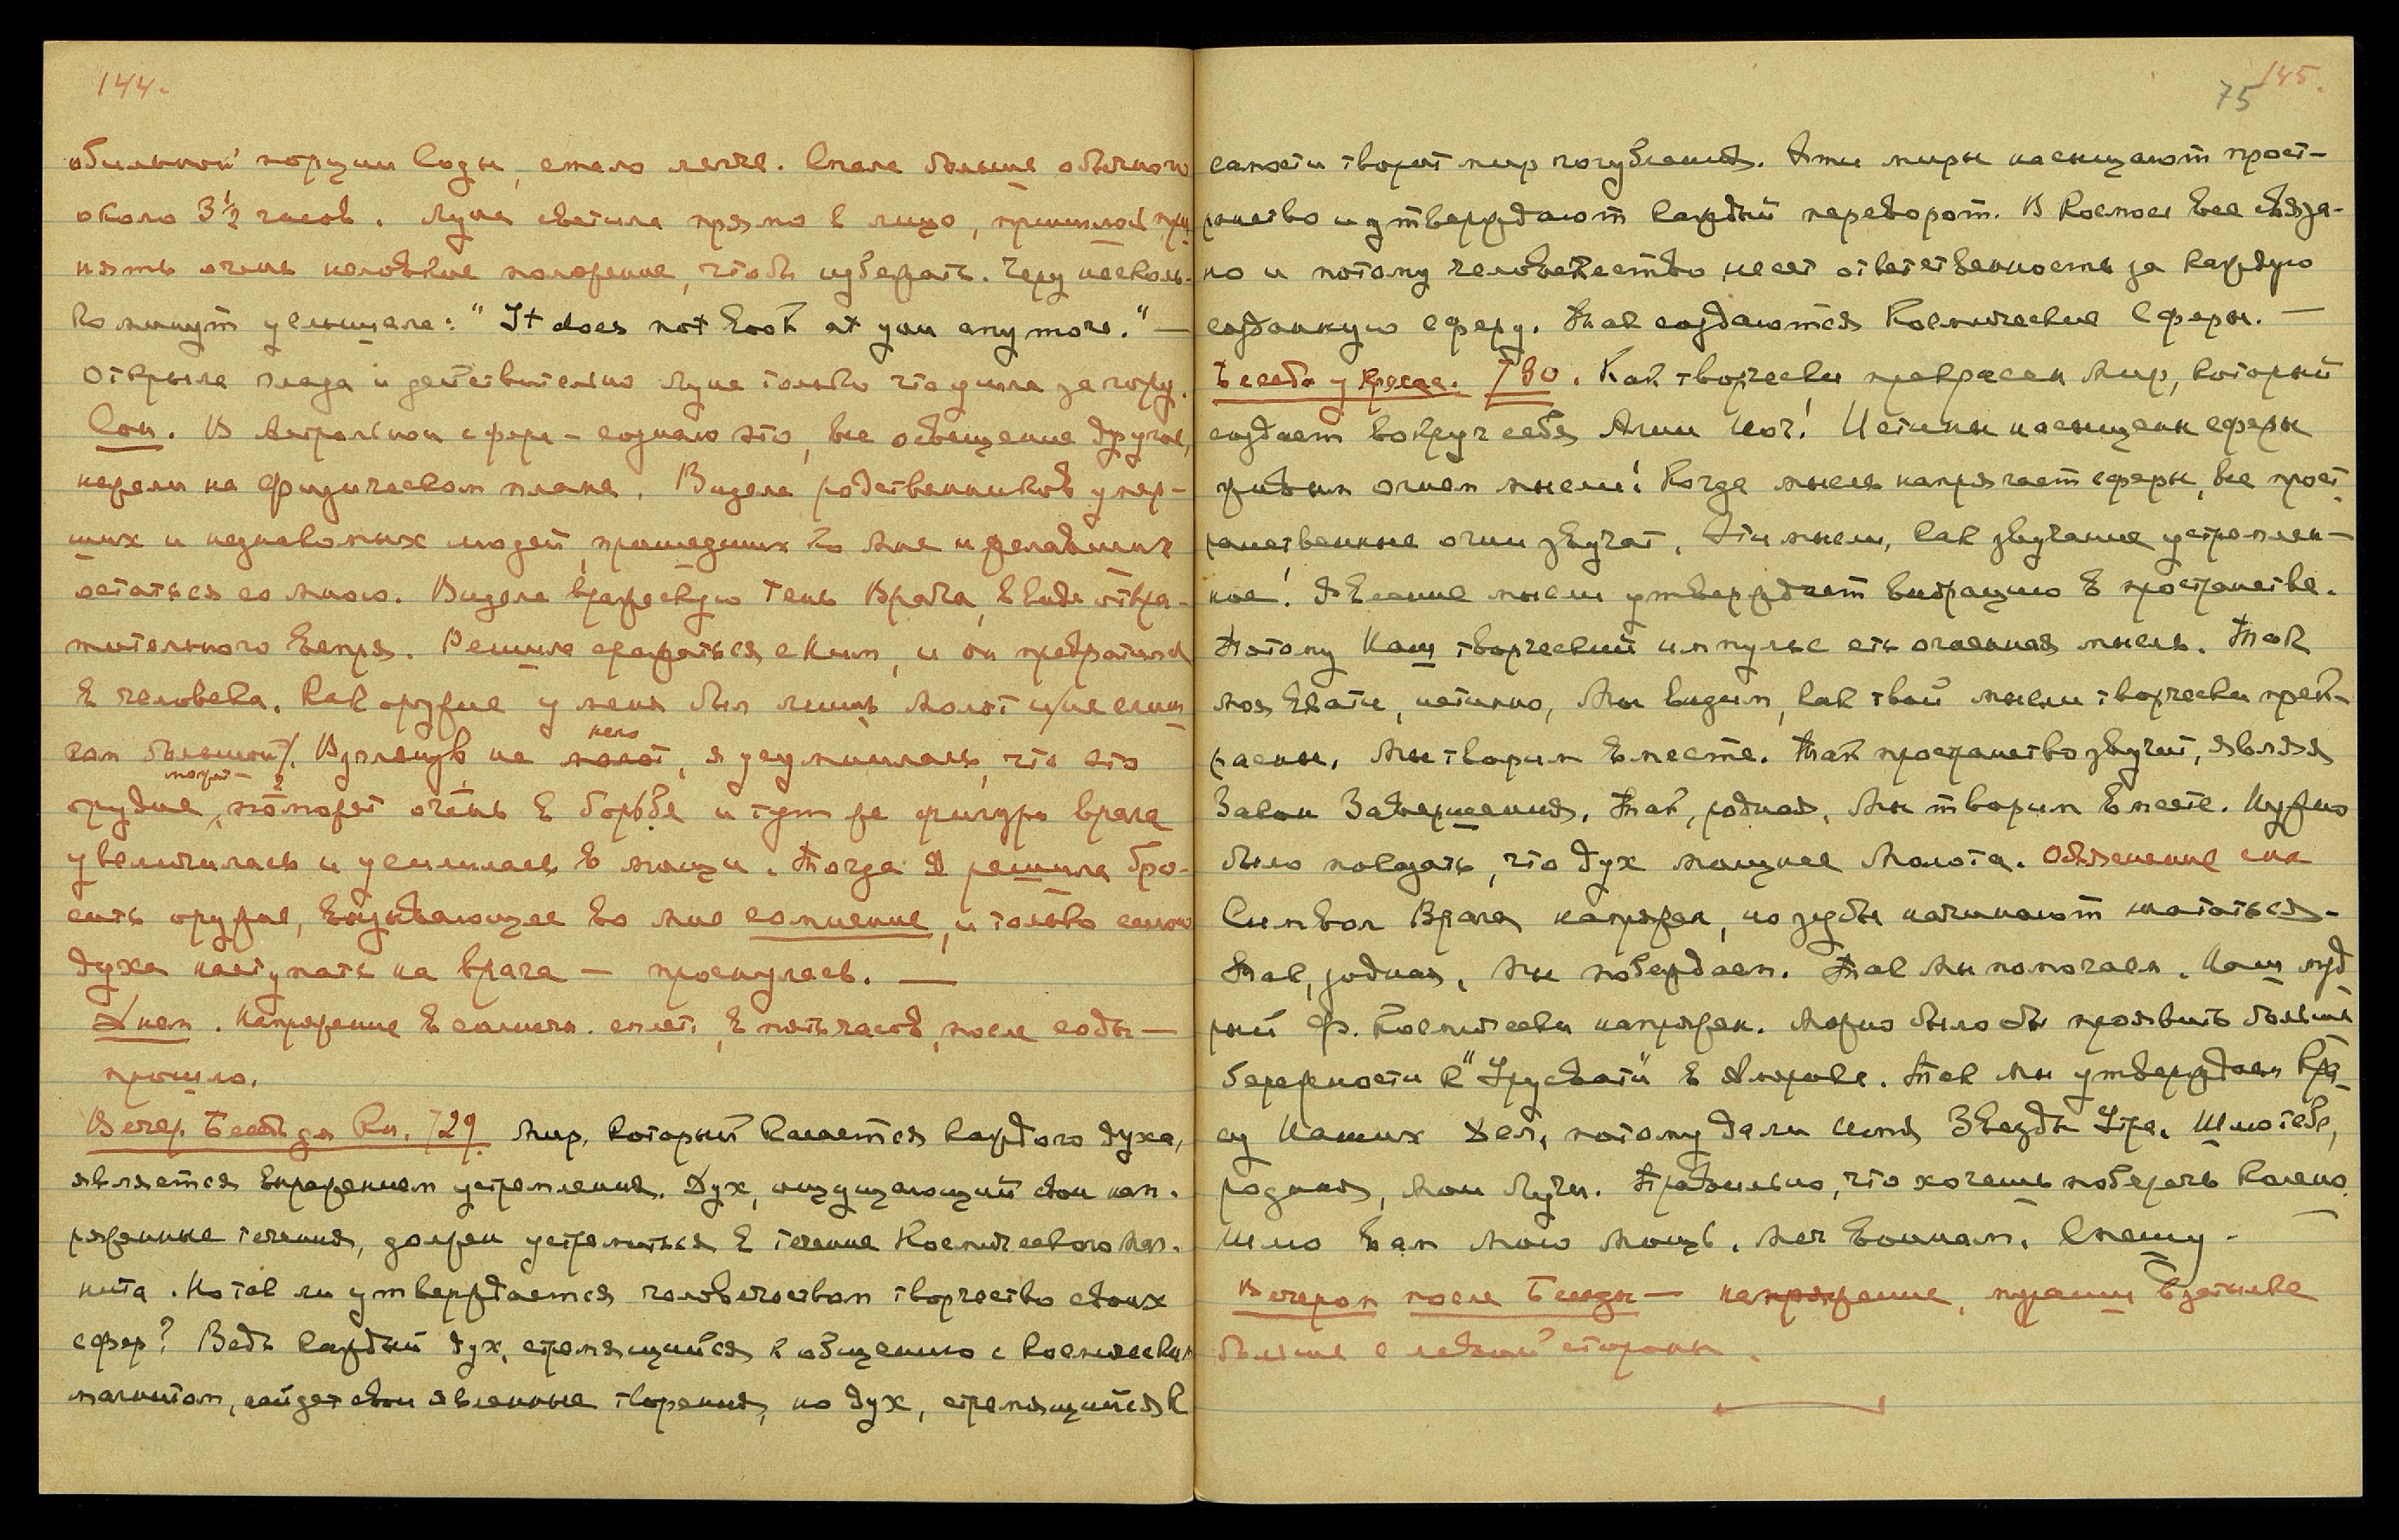 144.
обильной порции Соды, стало легче. Спала больше обычного
около 3½ часов. Луна светила прямо в лицо, пришлось при
нять очень неловкие положение, чтобы избежать. Через несколь-
ко минут услышала: "It does not look at you any more." —
открыла глаза и действительно Луна только что ушла за гору.
Сон. В Астральной сфере – сознаю это, все освещение другое,
нежели на физическом плане. Видела родственников умер-
ших и незнакомых людей, пришедших ко мне и желавших
остаться со мною. Видела вражескую тень Врага, в виде отвра-
тительного вепря. Решила сражаться с Ним, и он превратился
в человека. Как оружие у меня был лишь молот и/не слиш
ком большой/. Взглянув на него молот, я усумнилась, что это
орудие, может поможет очень в борьбе и тут же фигура врага
увеличилась и усилилась в мощи. Тогда Я решила бро-
сить оружие, вызывающее во мне сомнение, и только силою
духа наступать на врага — проснулась. —
Днем. Напряжение в солнечн. сплет., в пять часов, после соды —
прошло.
Вечер. Беседа Кн. 729 Мир, который касается каждого духа,
является выражением устремления. Дух, ощущающий свои нап-
ряженные течения, должен устремиться в течение Космического Маг-
нита. Но так ли утверждается человечеством творчество своих
сфер? Ведь каждый дух, стремящийся к общению с Космическим
магнитом, найдет свои явленные творения, но дух, стремящийся к
145.
75
самости творит мир погубления. Эти миры насыщают прост-
ранство и утверждают каждый переворот. В Космосе все связа-
но и потому человечество несет ответственность за каждую
созданную сферу. Так создаются Космические Сферы. —
Беседа у кресла. 730. Как творчески прекрасен Мир, который
создает вокруг себя Агни Йог! Истинны насыщены сферы
живым огнем мысли! Когда мысль напрягает сферы, все прост
ранственные огни звучат. Эти мысли, как звучание устремлен-
ное! Явление мысли утверждает вибрацию в пространстве.
Потому Наш творческий импульс есть огненная мысль. Так
моя Свати, истинно, Мы видим, как твои мысли творчески прек-
расны. Мы творим вместе. Так пространство звучит, являя
Закон Завершения. Так, родная, Мы творим вместе. Нужно
было показать, что дух мощнее Молота. Объяснение сна
Символ Врага напряжен, но зубы начинают шататься.
Так, родная, Мы побеждаем. Так Мы помогаем. Наш муд
рый Ф. Космически напряжен. Можно было бы проявить больше
бережности к "Урусвати" в Америке. Так Мы утверждаем Кра-
су Наших Дел, потому дали имя Звезды Утра. Шлю тебе,
родная, Мои Лучи. Правильно, что хочешь поберечь колено.
Шлю Вам Мою Мощь. Меч Воинам. Спешу.
Вечером после Беседы — напряжение, мураши в затылке
больше с левой стороны.